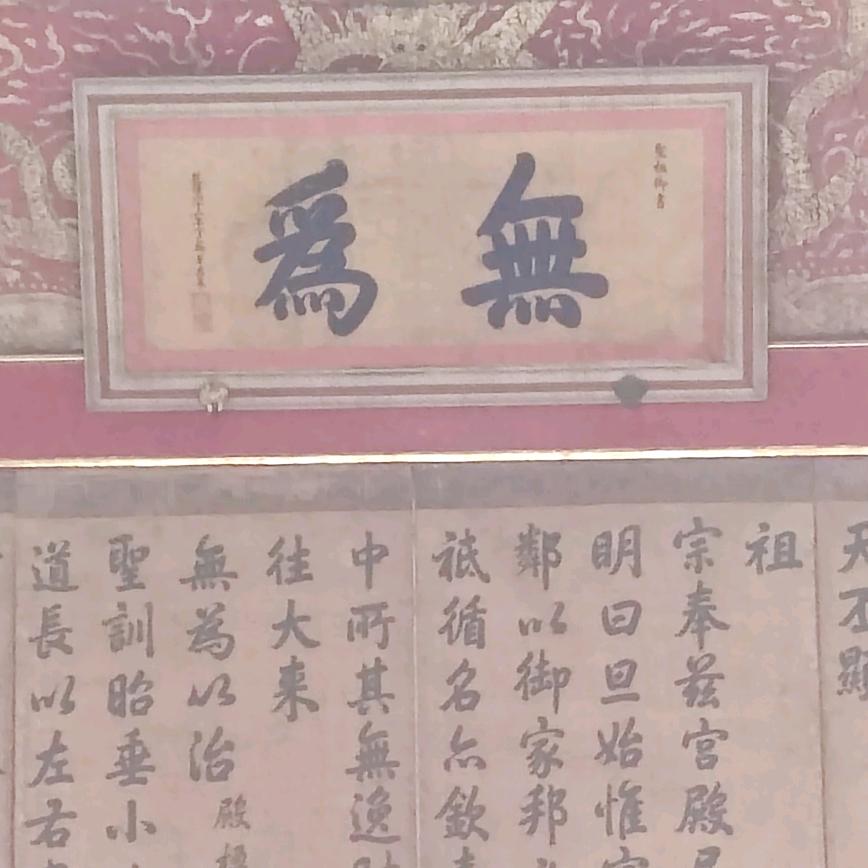 聖祖御書
無爲
天丕顯
祖
宗奉茲宮殿
明曰旦始惟
鄰以御家邦
祗循名亦欽
中所其無逸
往大来
無為以治
殿
聖訓昭垂小
道長以左右